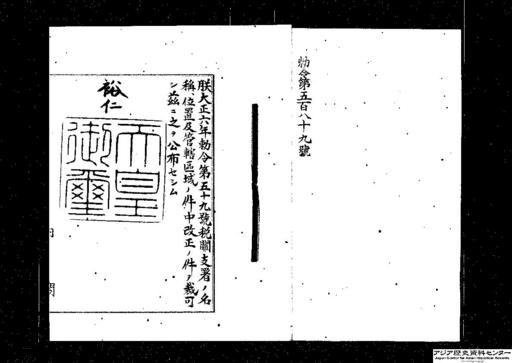 勅令第五百八十九號
朕大正六年勅令第五十九號税關支署ノ名
稱、位置及管轄區域ノ件中改正ノ件ヲ裁可
シ茲ニ之ヲ公布セシム
裕仁
天皇
御璽
内
閣
アジア歴史資料センター
Japan Center for Asian Historical Records